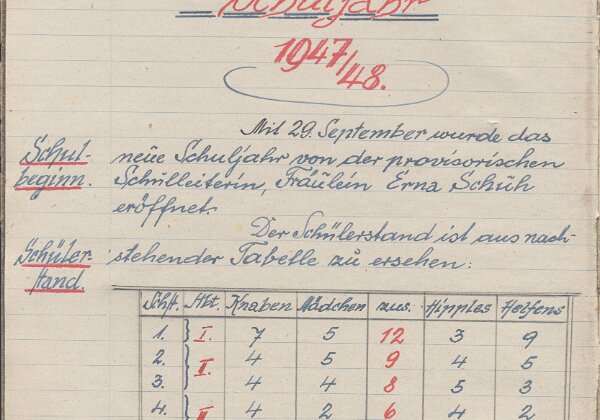 Schuljahr
1947/48.
Mit 29. September wurde das
Schul- neue Schuljahr von der provisorischen
beginn. Schulleiterin, Fräulein Erna Schuh
eröffnet.
Der Schülerstand ist aus nach-
Schüler- stehender Tabelle zu ersehen:
stand.
Schst. Abt. Knaben Mädchen zus. Hipples Helfens
1. I. 7 5 12 3 9
2. II. 4 5 9 4 5
3. 4 4 8 5 3
4. 4 2 6 4 2